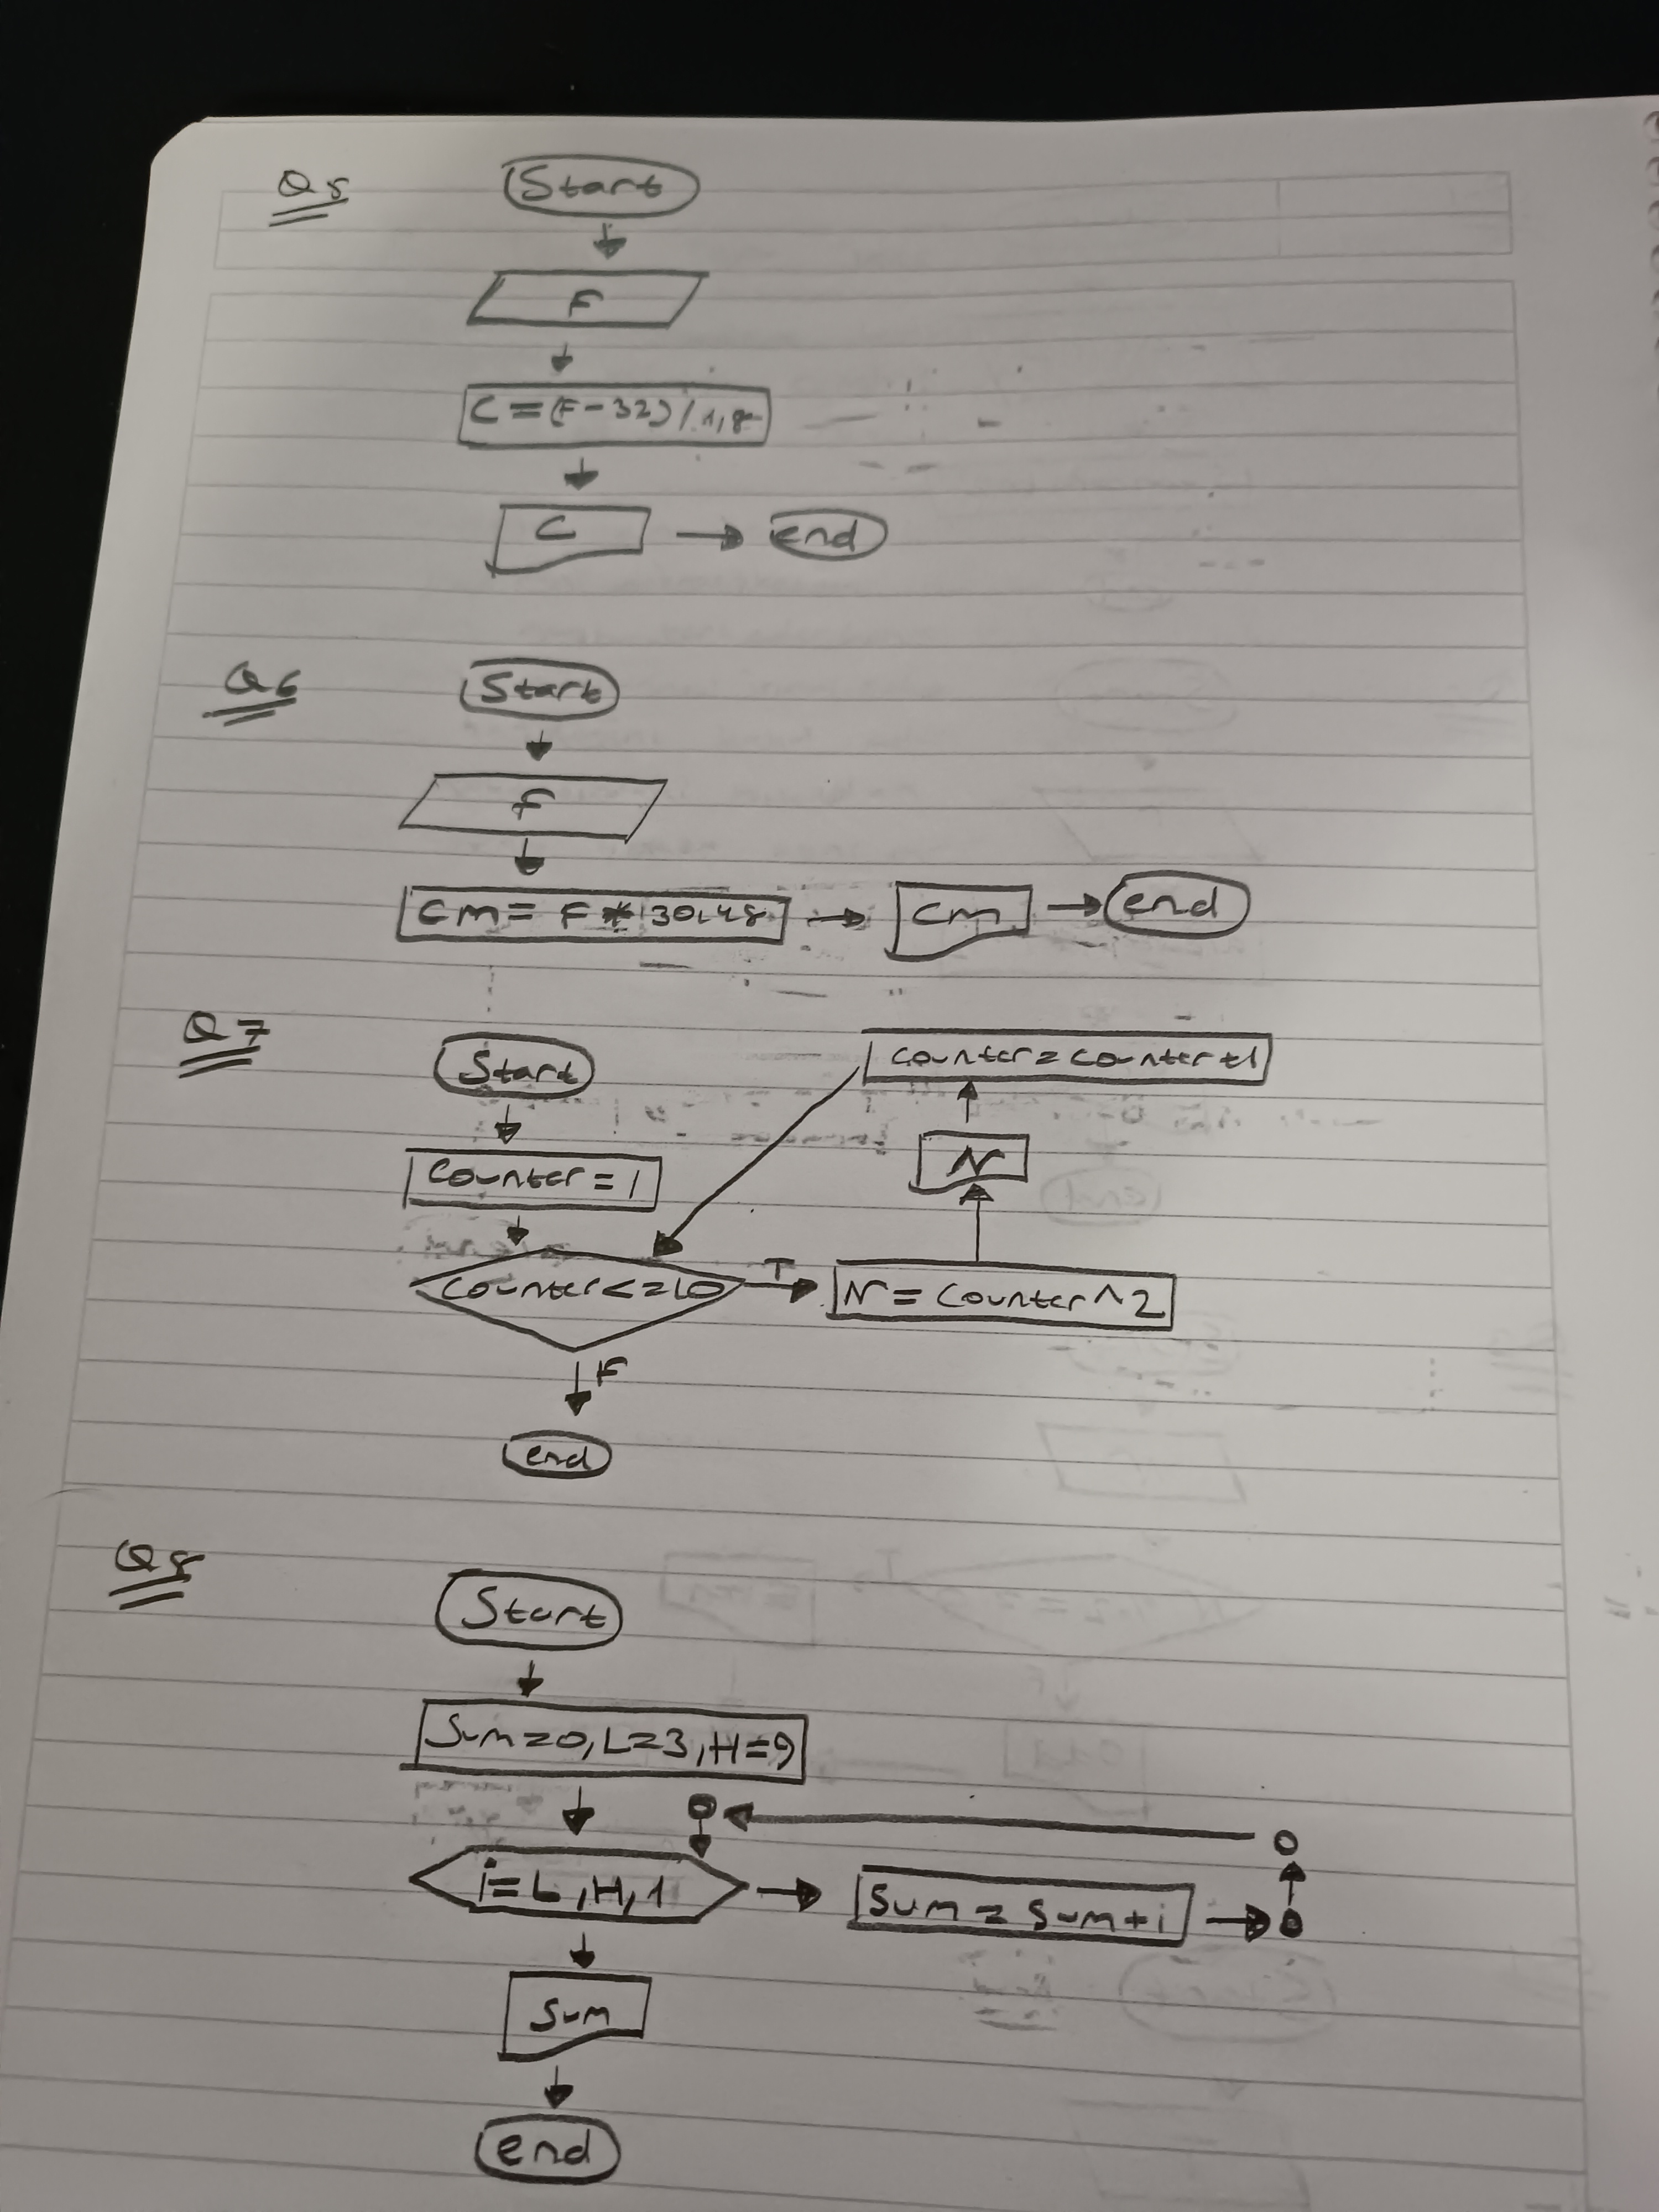 Q5
Start
F
C = (F-32) / 1,8
C
end
Q6
Start
F
cm = F * 30,48
cm
end
Q7
Start
counter = counter +1
N
counter = 1
counter <= 10
T
N = counter ^ 2
F
end
Q8
Start
Sum = 0, L = 3, H = 9
i = L, H, 1
Sum = Sum + i
Sum
end